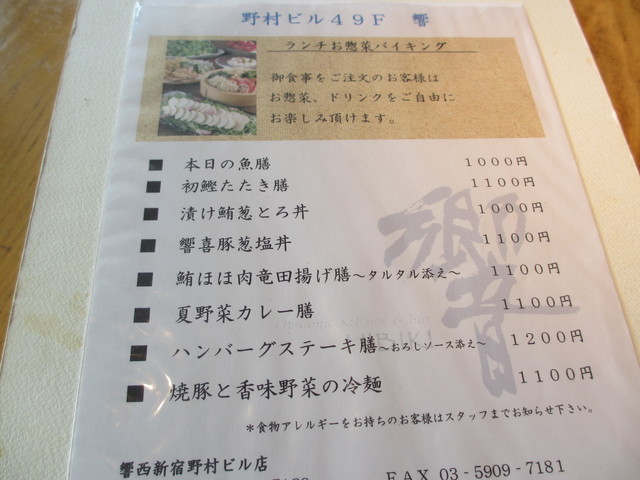 野村ビル49F 響
ランチお惣菜バイキング
御食事をご注文のお客様は
お惣菜、ドリンクをご自由に
お楽しみ頂けます。
■ 本日の魚膳 1000円
■ 初鰹たたき膳 1100円
■ 漬け鮪葱とろ丼 1000円
■ 響喜豚葱塩丼 1100円
■ 鮪ほほ肉竜田揚げ膳～タルタル添え～ 1100円
■ 夏野菜カレー膳 1100円
■ ハンバーグステーキ膳～おろしソース添え～ 1200円
■ 焼豚と香味野菜の冷麺 1100円
響
*食物アレルギーをお持ちのお客様はスタッフまでお知らせ下さい。
響西新宿野村ビル店
FAX 03-5909-7181